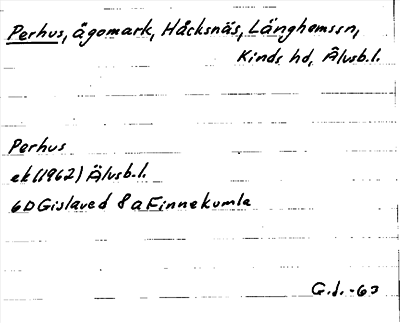 Perhus, ägomark, Håcksnäs, Länghemssn,
Kinds hd, Älvsb.l.
Perhus
ek(1962) Älvsb.l.
6D Gislaved 8 a Finnekumla
G.l. -63